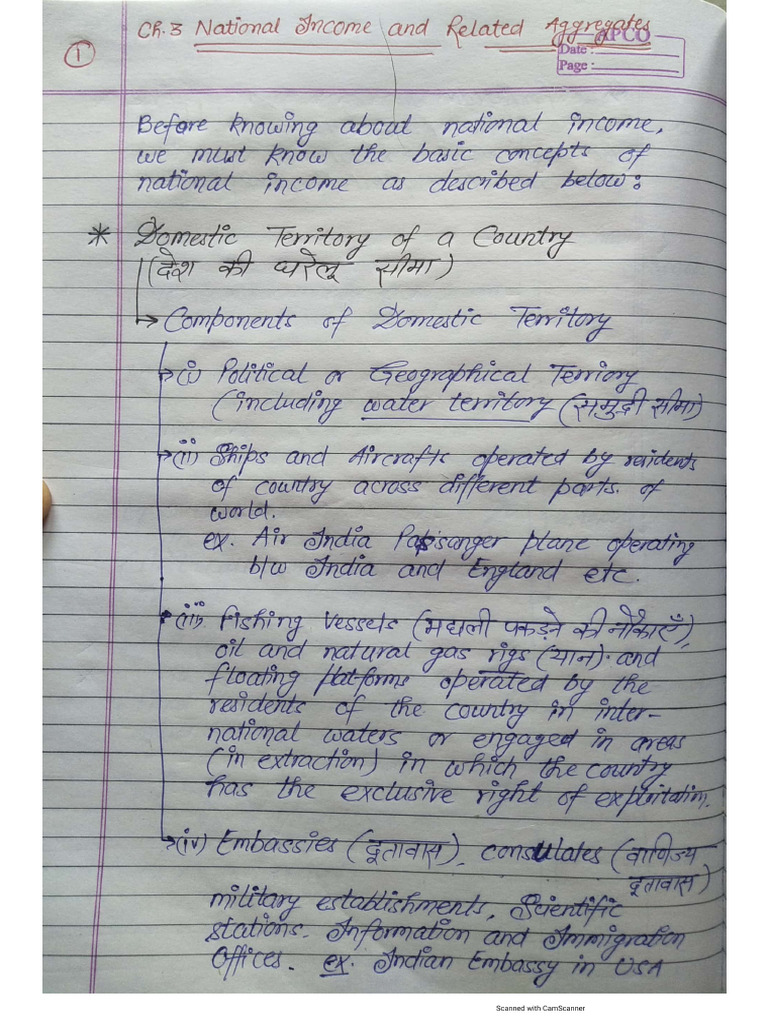 Ch.3 National Income and Related Aggregates
1
APCO
Date :
Page :
Before knowing about national income,
we must know the basic concepts of
national income as described below:
* Domestic Territory of a Country
(देश की घरेलू सीमा)
→ Components of Domestic Territory
→ (i) Political or Geographical Terriory
(including water territory (समुद्री सीमा)
→ (ii) Ships and Aircrafts operated by residents
of country across different parts of
world.
ex. Air India Passanger plane operating
b/w India and England etc.
(iii) Fishing Vessels (मछली पकड़ने की नौकाएँ),
oil and natural gas rigs (यान) and
floating platforms operated by the
residents of the country in inter-
national waters or engaged in areas
(in extraction) in which the country
has the exclusive right of exploitation.
→ (iv) Embassies (दूतावास), consulates (वाणिज्य
दूतावास)
military establishments, Scientific
stations. Information and Immigration
Offices. ex. Indian Embassy in USA
Scanned with CamScanner